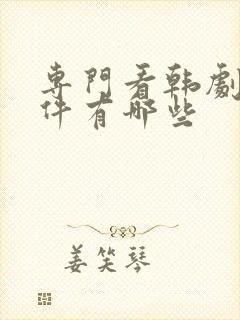 專門看韩劇
件有哪些
姜笑琴